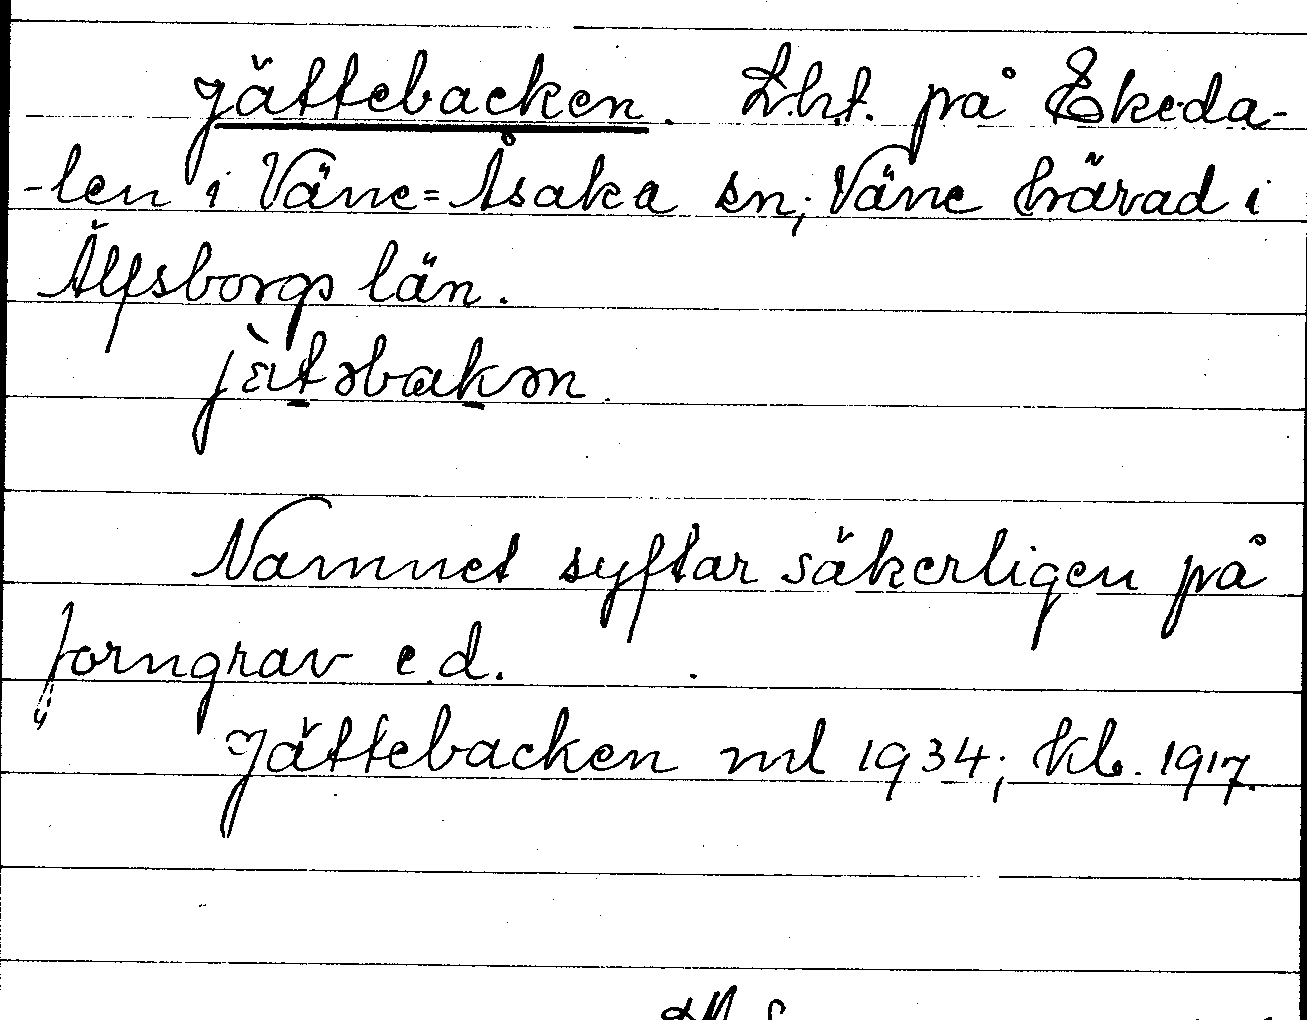 Jättebacken. Lht. på Ekeda-
-len i Väne=Åsaka sn; Väne härad i
Älfsborgs län.
jὰtəbakən.
Namnet syftar säkerligen på
forngrav e.d.
Jättebacken ml 1934; kb. 1917.